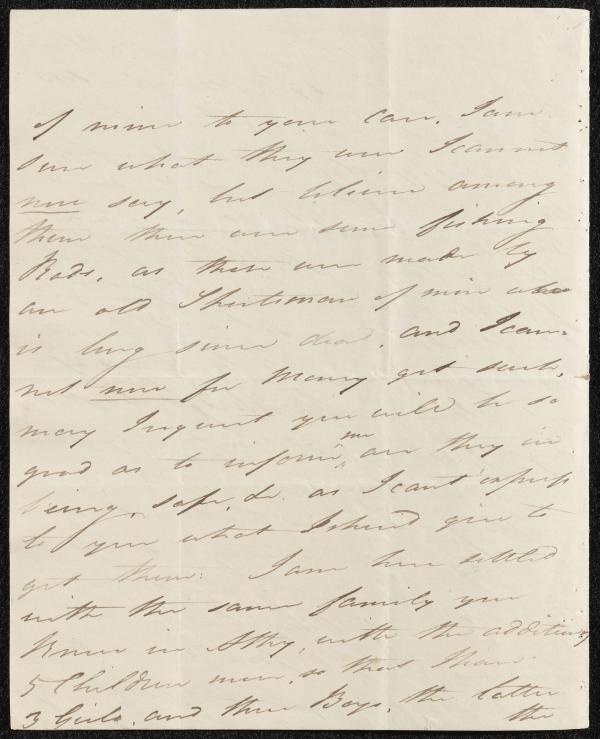 of mine to your Care. I am
sure what they are I cannot
now say, but believe among
them there are some fishing
Rods, as these are made by
an old Sportsman of mine who
is long since dead, and I can-
not now for Money get such,
may I request you will be so
good as to inform me are they in
being, safe, &c. as I cant express
to you what I should give to
get them: I am here settled
with the same family you
knew in Athy, with the addition of
5 Children more, so that I have
3 Girls, and three Boys, the latter
the